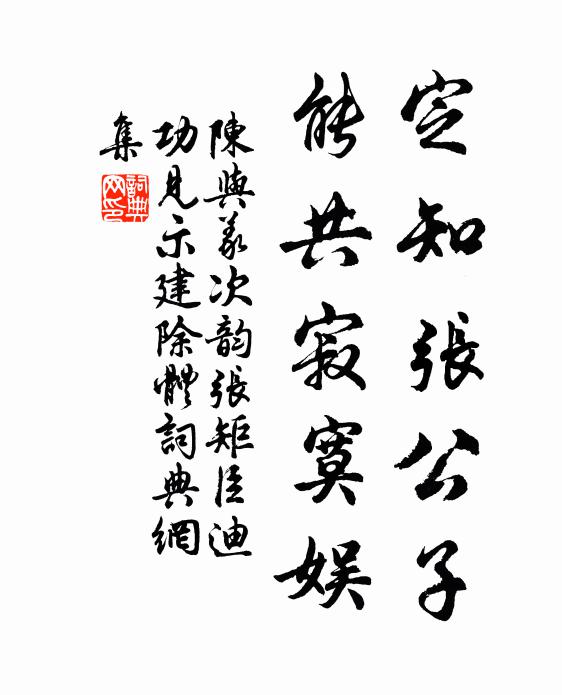 定知張公子
能共寂寞娱
陳與義次韵張矩臣迪
功見示建除體詞典網
集
詞典網印